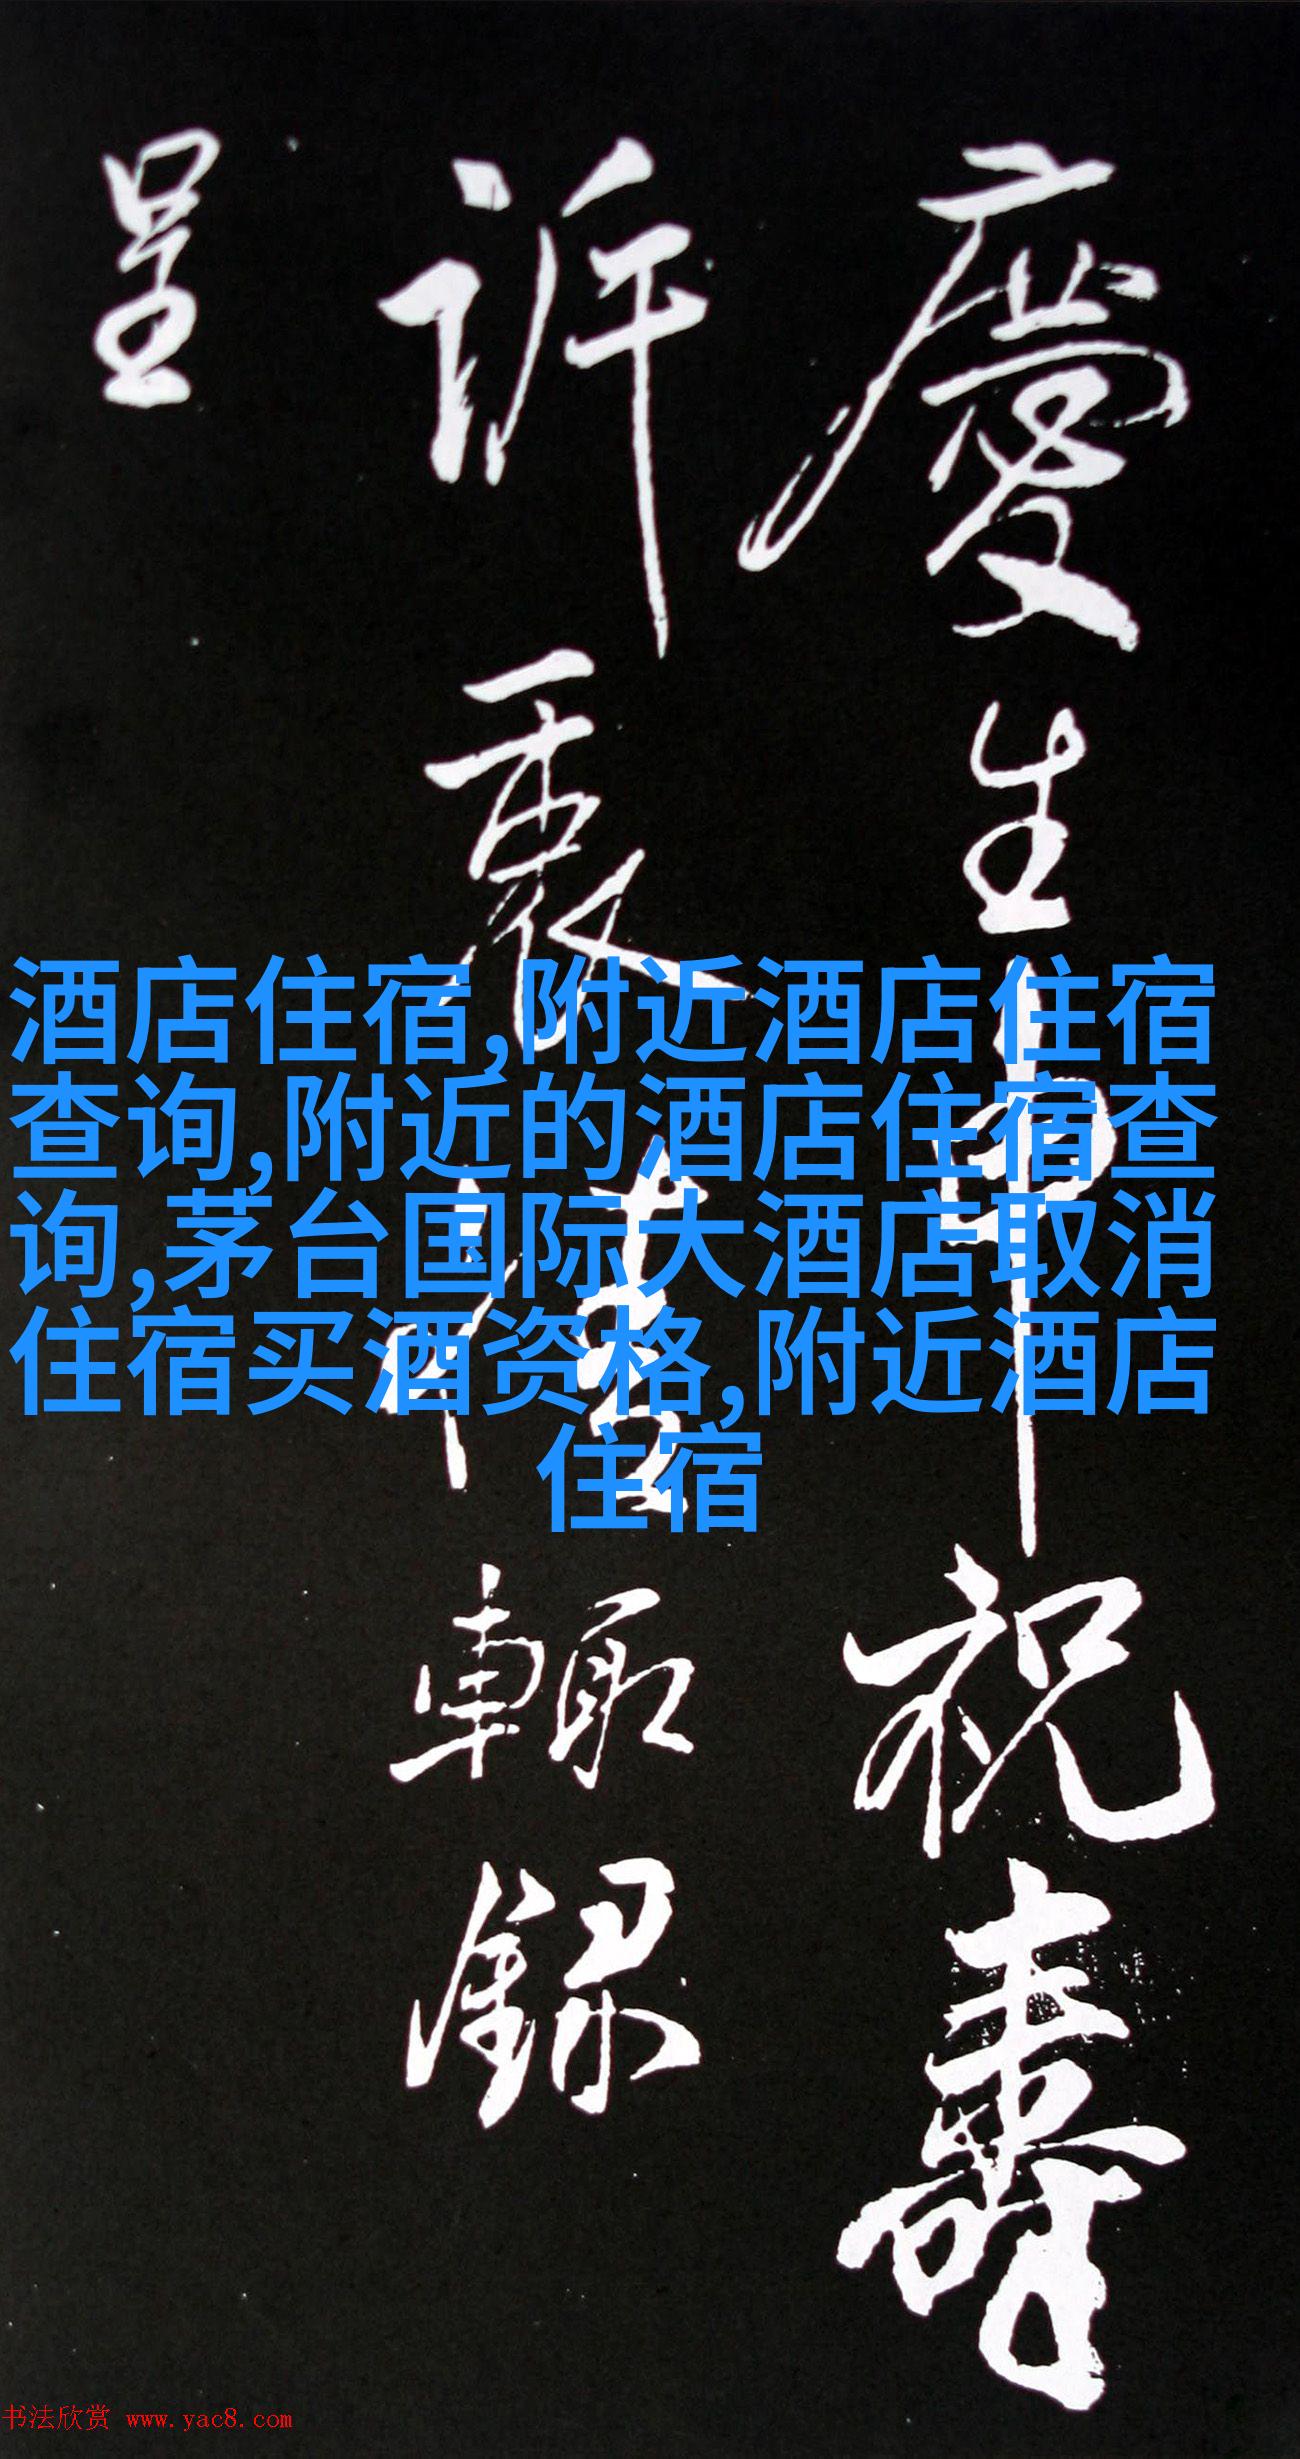 慶生申祝壽
訢衷情輒録
呈
酒店住宿,附近酒店住宿
查询,附近的酒店住宿查
询,茅台国际大酒店取消
住宿买酒资格,附近酒店
住宿
书法欣赏 www.yac8.com